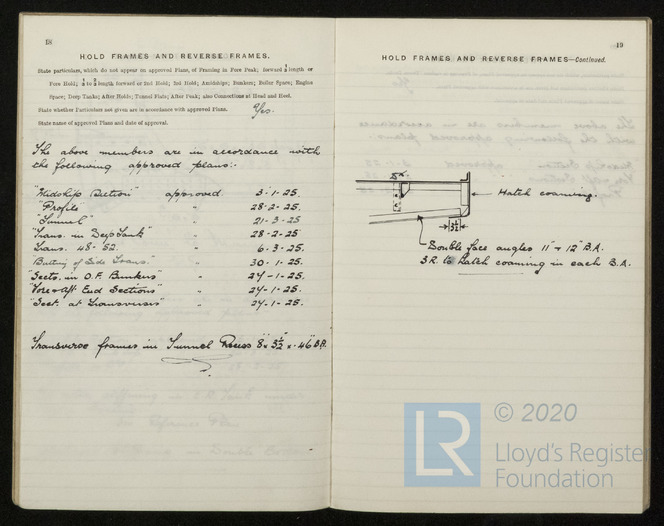 18
HOLD FRAMES AND REVERSE FRAMES.
State particulars, which do not appear on approved Plans, of Framing in Fore Peak; forward 1/5 length or
Fore Hold; 1/5 to 2/5 length forward or 2nd Hold; 3rd Hold; Amidships; Bunkers; Boiler Space; Engine
Space; Deep Tanks; After Holds; Tunnel Flats; After Peak; also Connections at Head and Heel.
State whether Particulars not given are in accordance with approved Plans. Yes.
State name of approved Plans and date of approval.
The above members are in accordance with
the following approved plans:-
"Midship Section" approved 3·1·25.
"Profile" " 28·2·25.
"Tunnel" " 21-3-25
"Trans. in Deep Tank" " 28-2-25
Trans. 48-52. " 6-3-25.
Butting of Side Trans." " 30-1-25.
"Sects. in O.F. Bunkers" " 24-1-25.
"Fore & Aft End Sections" " 24-1-25.
"Sect. at Transverses" " 24-1-25.
Transverse frames in Tunnel Recess 8" x 3½" x .46" B.A.
19
HOLD FRAMES AND REVERSE FRAMES—Continued.
Hatch coaming.
3½
Double face angles 11" & 12" B.A.
S.R. to hatch coaming in each B.A.
© 2020
LR
Lloyd's Register
Foundation